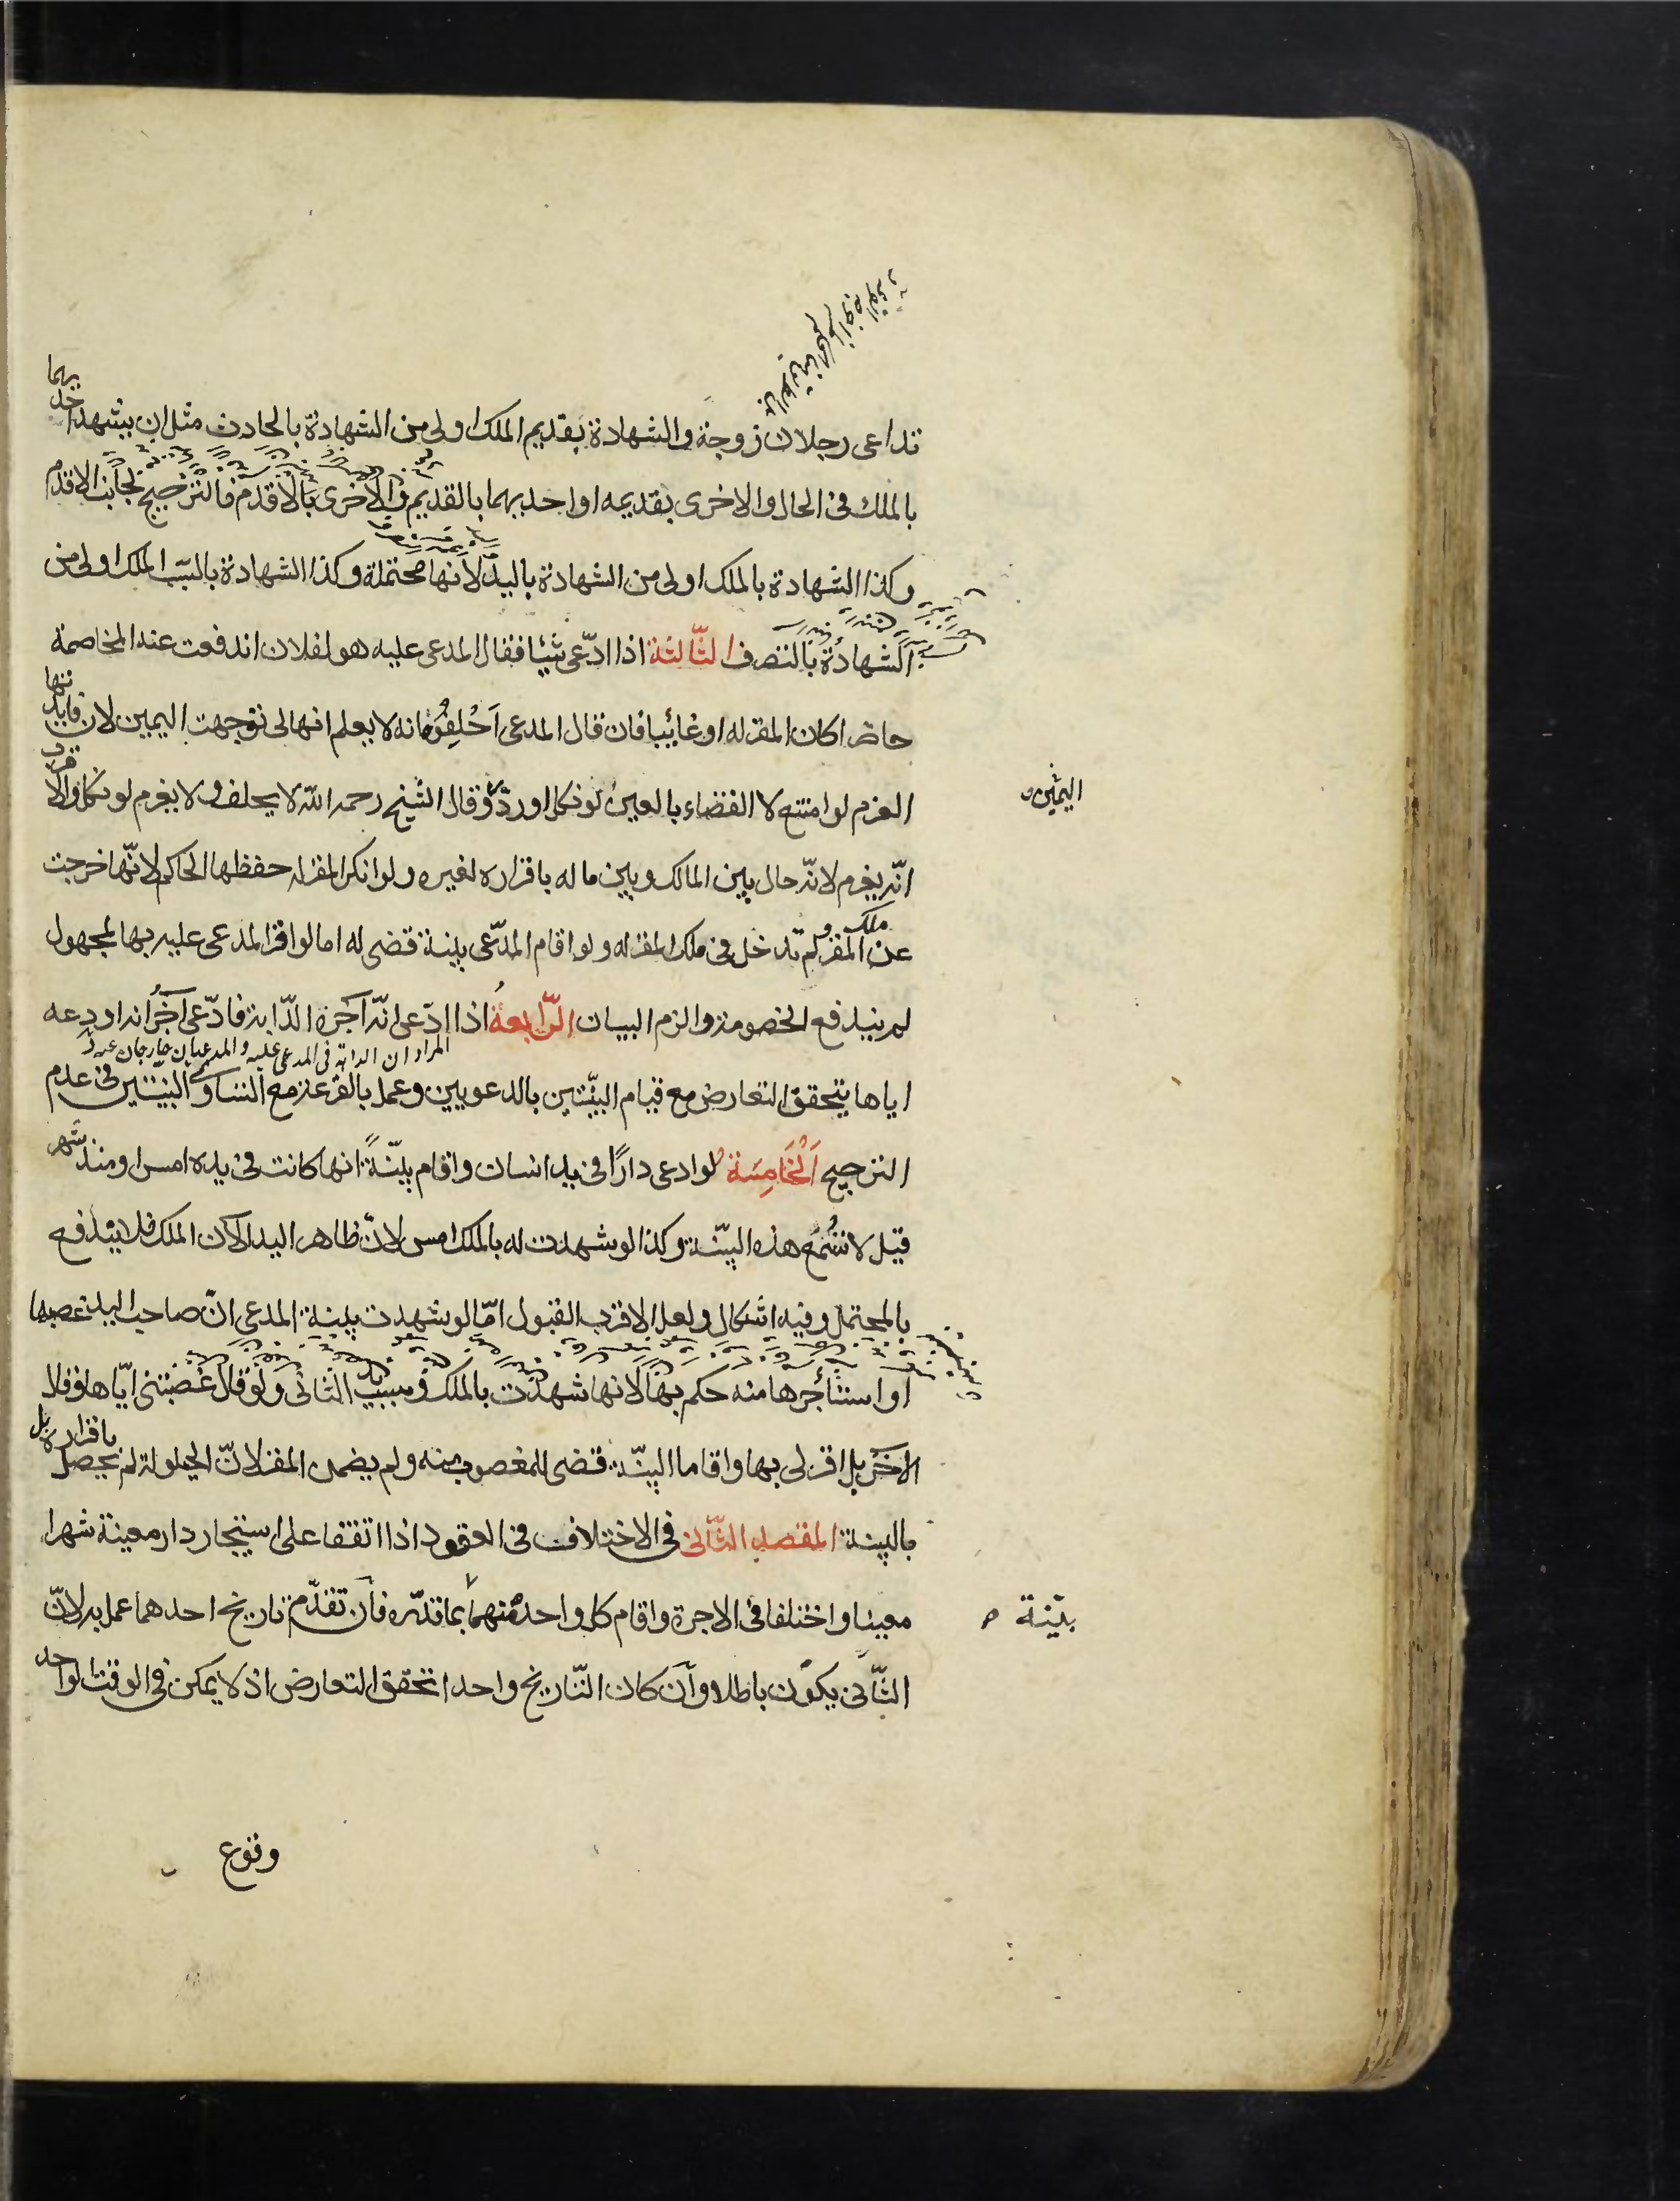 تداعى رجلان زوجة والشهادة بقديم الملك اولى من الشهادة بالحادث مثل ان يشهد احديهما
بالملك فى الحال والاخرى بقديمه او احديهما بالقديم والاخرى بالاقدم فالترجيح لجانب الاقدم
وكذا الشهادة بالملك اولى من الشهادة باليد لانها محتملة وكذا الشهادة بالسبب الملك اولى من
الشهادة بالتصرف الثّالثة اذا ادّعى شيئا فقال المدعى عليه هو لفلان اندفعت عنه المخاصمة
حاضرا كان المقر له او غائبا فان قال المدعى اَحْلِفُوه انه لا يعلم انها لى توجهت اليمين لان فايدتها
الغرم لو امتنع لا القضاء بالعين لو نكل او ردّ وقال الشيخ رحمه الله لا يحلف ولا يغرم لو نكل والاقرب
اليمين
انّه يغرم لانّه حال بين المالك وبين ماله باقراره لغيره ولو انكر المقر له حفظها الحاكم لانّها خرجت
عن ملك المقر ولم تدخل فى ملك المقر له ولو اقام المدّعى بينة قضى له اما لو اقر المدعى عليه بها لمجهول
لم يندفع الخصومة والزم البيان الرّابعةُ اذا ادّعى انّه اَجَره الدّابة فادّعى آخَرُ انه اودعه
المراد ان الدابة فى المدعى عليه والمدعيان خارجان عنه
اياها يتحقق التعارض مع قيام البيّنتين بالدعويين وعمل بالقرعة مع التساوى البينتين فى عدم
الترجيح اَلْخَامِسَة لو ادعى دارًا فى يد انسان واقام بيّنةً انها كانت فى يده امس او منذ شهر
قيل لا تُسْمَع هذه البيّنة وكذا لو شهدت له بالملك امس لانّ ظاهر اليد الآن الملك فلا يدفع
بالمحتمل وفيه اشكال ولعل الاقرب القبول امّا لو شهدت بينة المدعى انّ صاحب اليد غصبها
او استأجرها منه حكم بها لانها شهدت بالملك وسبب يد الثانى ولو قال غصبتنى ايّاها وقال
الآخر بل اقر لى بها واقاما البيّنة قضى للمغصوب منه ولم يضمن المقر لانّ الحيلولة لم يحصل باقراره بل
بالبينة المقصد الثّانى فى الاختلاف فى العقود اذا اتفقا على استيجار دار معينة شهرا
معينا واختلفا فى الاجرة واقام كل واحد منهما بما قدّره فان تقدّم تاريخ احدهما عمل به لانّ
بيّنة
الثّانى يكون باطلا وان كان التّاريخ واحدا تحقق التعارض اذ لا يمكن فى الوقت الواحد
وقوع